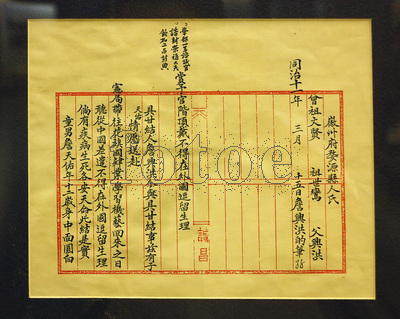 徽州府婺源縣人氏
曾祖文賢 祖世鸞 父興洪
同治十一年 三月 十五日詹興洪的筆
官階頂戴不得在外國逗留生理
具甘結人詹興洪今與具甘結事茲有子
天佑情願送赴
憲局帶往花旗國肄業學習機藝回來之日
聽從中國差遣不得在外國逗留生理
倘有疾病生死各安天命此結是實
童男詹天佑年十二歲身中面圓白